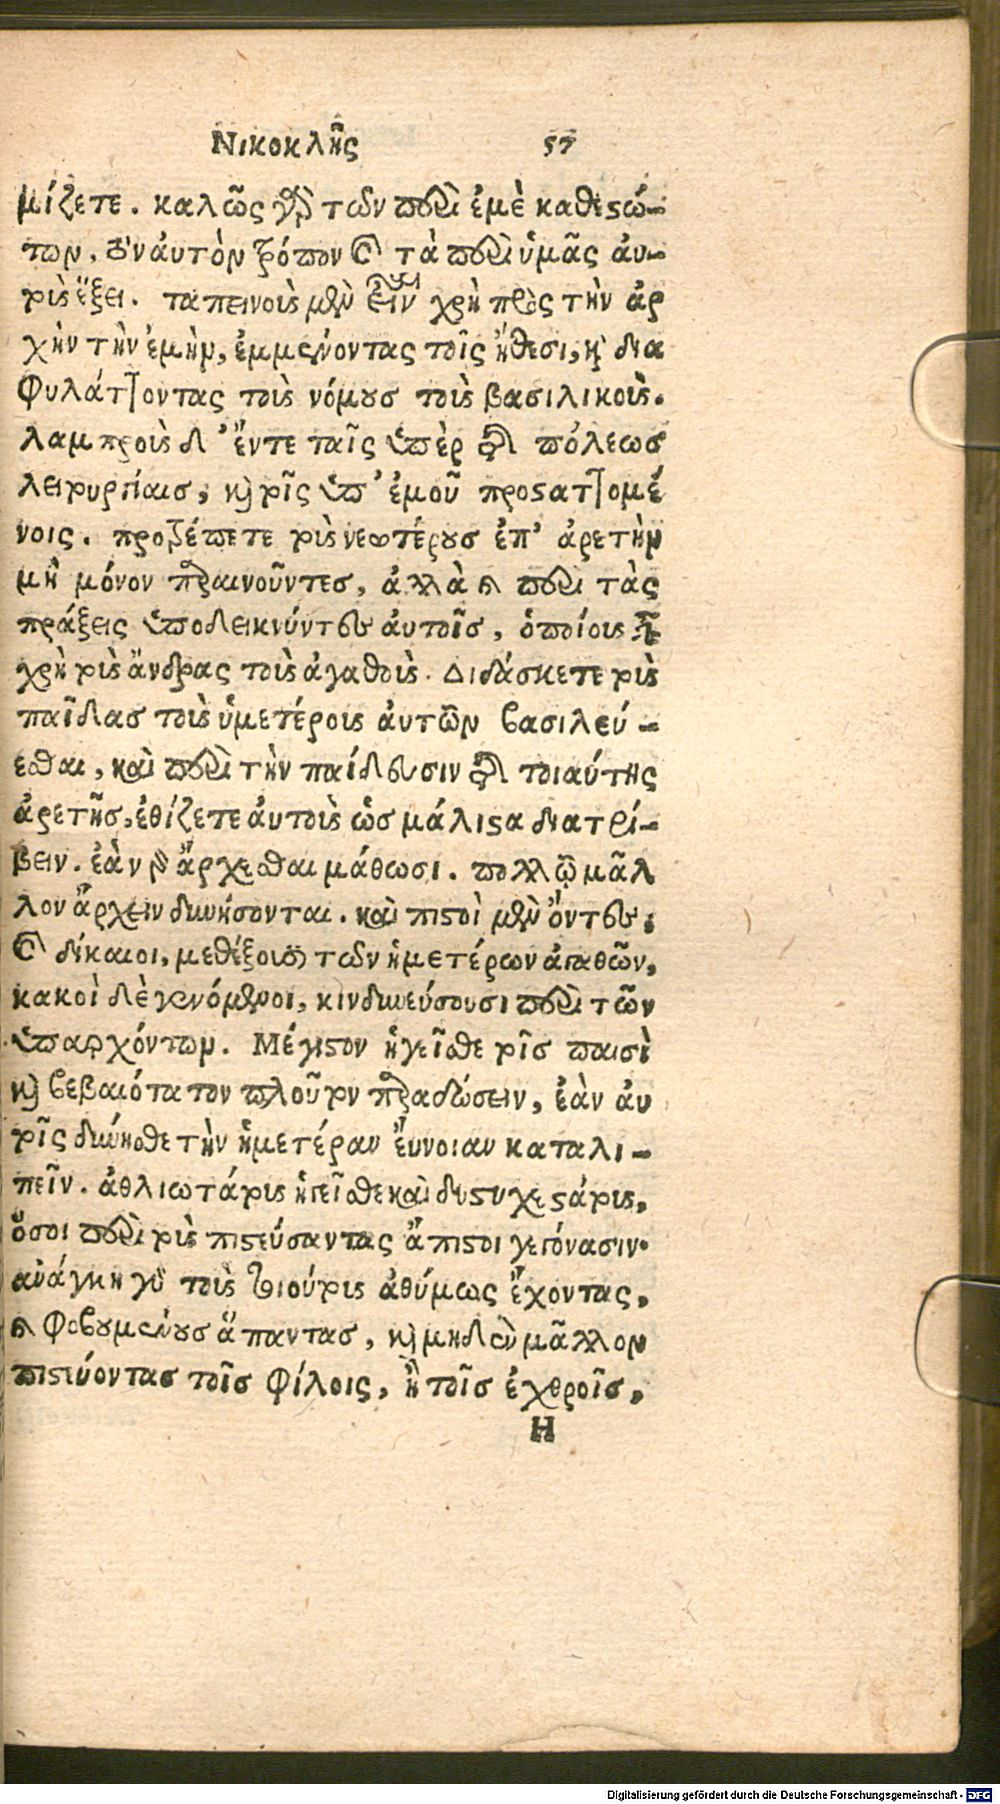 Νικοκλῆς 57
μίζετε. καλῶς γὰρ τῶν περὶ ἐμὲ καθεστώ-
των, τὸν ἀυτὸν τρόπον καὶ τὰ περὶ ὑμᾶς ἀυ-
τοῖς ἕξει. ταπεινοὺς μὲν εἶναι χρὴ πρὸς τὴν ἀρ
χὴν τὴν ἐμὴν, ἐμμένοντας τοῖς ἤθεσι, καὶ δια
φυλάττοντας τοὺς νόμους τοὺς βασιλικούς.
λαμπροὺς δ' ἔν τε ταῖς ὑπὲρ τῆς πόλεως
λειτουργίαις, καὶ τοῖς ὑπ' ἐμοῦ προσαττομέ
νοις. προτρέπετε τοὺς νεωτέρους ἐπ' ἀρετὴν
μὴ μόνον παραινοῦντες, ἀλλὰ καὶ περὶ τὰς
πράξεις ὑποδεικνύντες ἀυτοῖς, ὁποίους εἶναι
χρὴ τοὺς ἄνδρας τοὺς ἀγαθούς. Διδάσκετε τοὺς
παῖδας τοὺς ὑμετέρους ἀυτῶν βασιλεύ-
εσθαι, καὶ περὶ τὴν παίδευσιν τῆς τοιαύτης
ἀρετῆς, ἐθίζετε ἀυτοὺς ὡς μάλιστα διατρί-
βειν. ἐὰν γὰρ ἄρχεσθαι μάθωσι. πολλῷ μᾶλ
λον ἄρχειν δυνήσονται. καὶ πιστοὶ μὲν ὄντες,
καὶ δίκαιοι, μεθέξουσι τῶν ἡμετέρων ἀγαθῶν,
κακοὶ δὲ γενόμενοι, κινδυνεύσουσι περὶ τῶν
ὑπαρχόντων. Μέγιστον ἡγεῖσθε τοῖς παισὶ
καὶ βεβαιότατον πλοῦτον παραδώσειν, ἐὰν ἀυ
τοῖς δύνησθε τὴν ἡμετέραν ἔυνοιαν καταλι-
πεῖν. ἀθλιωτάτους ἡγεῖσθε καὶ δυστυχεστάτους,
ὅσοι περὶ τοὺς πιστεύσαντας ἄπιστοι γεγόνασιν.
ἀνάγκη γὰρ τοὺς τοιούτους ἀθύμως ἔχοντας,
καὶ φοβουμένους ἅπαντας, καὶ μηδὲν μᾶλλον
πιστεύοντας τοῖς φίλοις, ἢ τοῖς ἐχθροῖς,
H
Digitalisierung gefördert durch die Deutsche Forschungsgemeinschaft - DFG